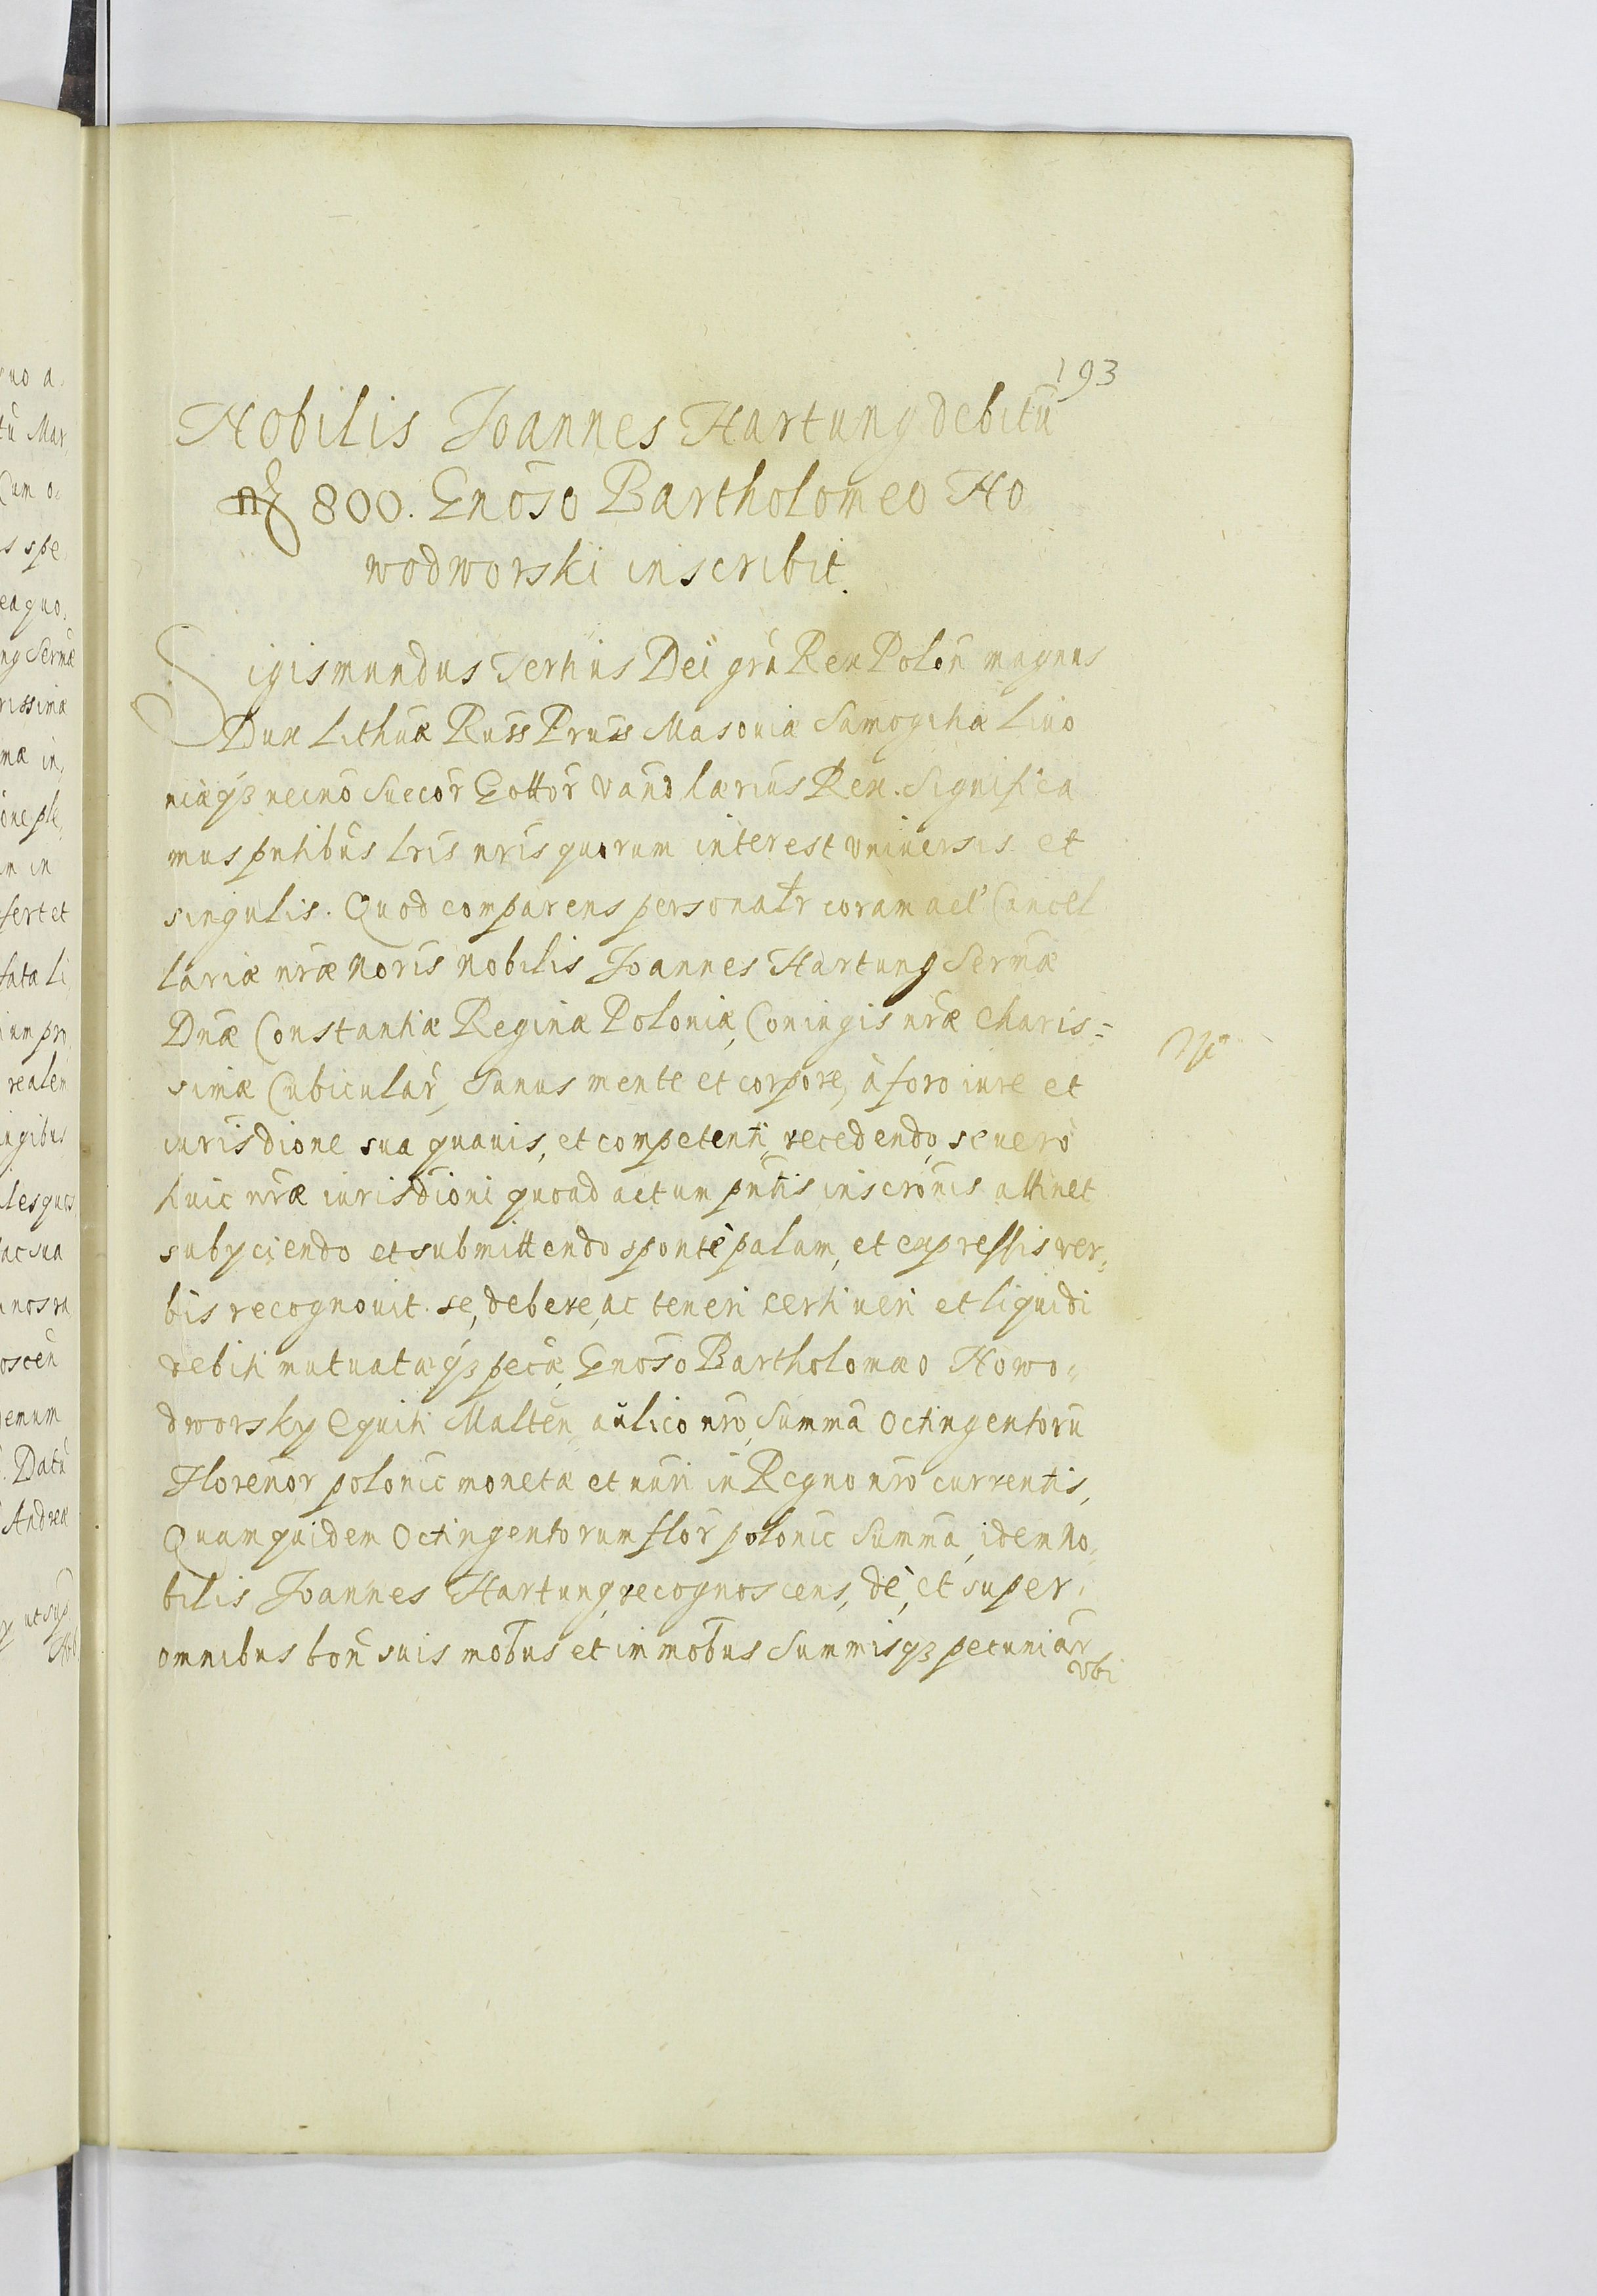 193
Nobilis Joannes Hartung debitū
800. Gnōso Bartholomeo No
wodworski inscribit.
Sigismundus Tertius Dei grā Rex Polon̄ magnus
Dux Lithuæ Russ Pruss Masouiæ Samogitiæ Liuo
niæqꝫ necnō Suecor̄ Gottor̄ Vand lærius Rex. Significa
mus pn̄tibus lris nr̄is quorum interest vniuersis et
singulis. Quod comparens personalr coram act Cancel
lariæ nr̄æ noris nobilis Joannes Hartung Sermæ
Dnæ Constantiæ Reginæ Poloniæ, Coniugis nr̄æ charis=
simæ Cubicular̄, Sanus mente et corpore, à foro iure et
iurisdione sua quauis, et competenti, recedendo, se uerò
huic nr̄æ iurisdioni quoad actum pn̄tis inscronis attinet
subyciendo et submittendo sponte palam, et expressis ver,,
bis recognouit. se, debere, ac teneri certi ueri et liquidi
debiti mutuatæqꝫ pecæ, Gnōso Bartholomæo Nowo,,
dworsky Equiti Malten, aulico nr̄o, Summā Octingentorū
Florenor̄ polonic monetæ et nūri in Regno nr̄o currentis,
Quam quidem Octingentorum flor̄ polonic Summā, idem No,,
bilis Joannes Hartung, recognoscens, de, et super,
omnibus bon̄ suis mobus et immobus Summisqꝫ pecuniar̄
vbi